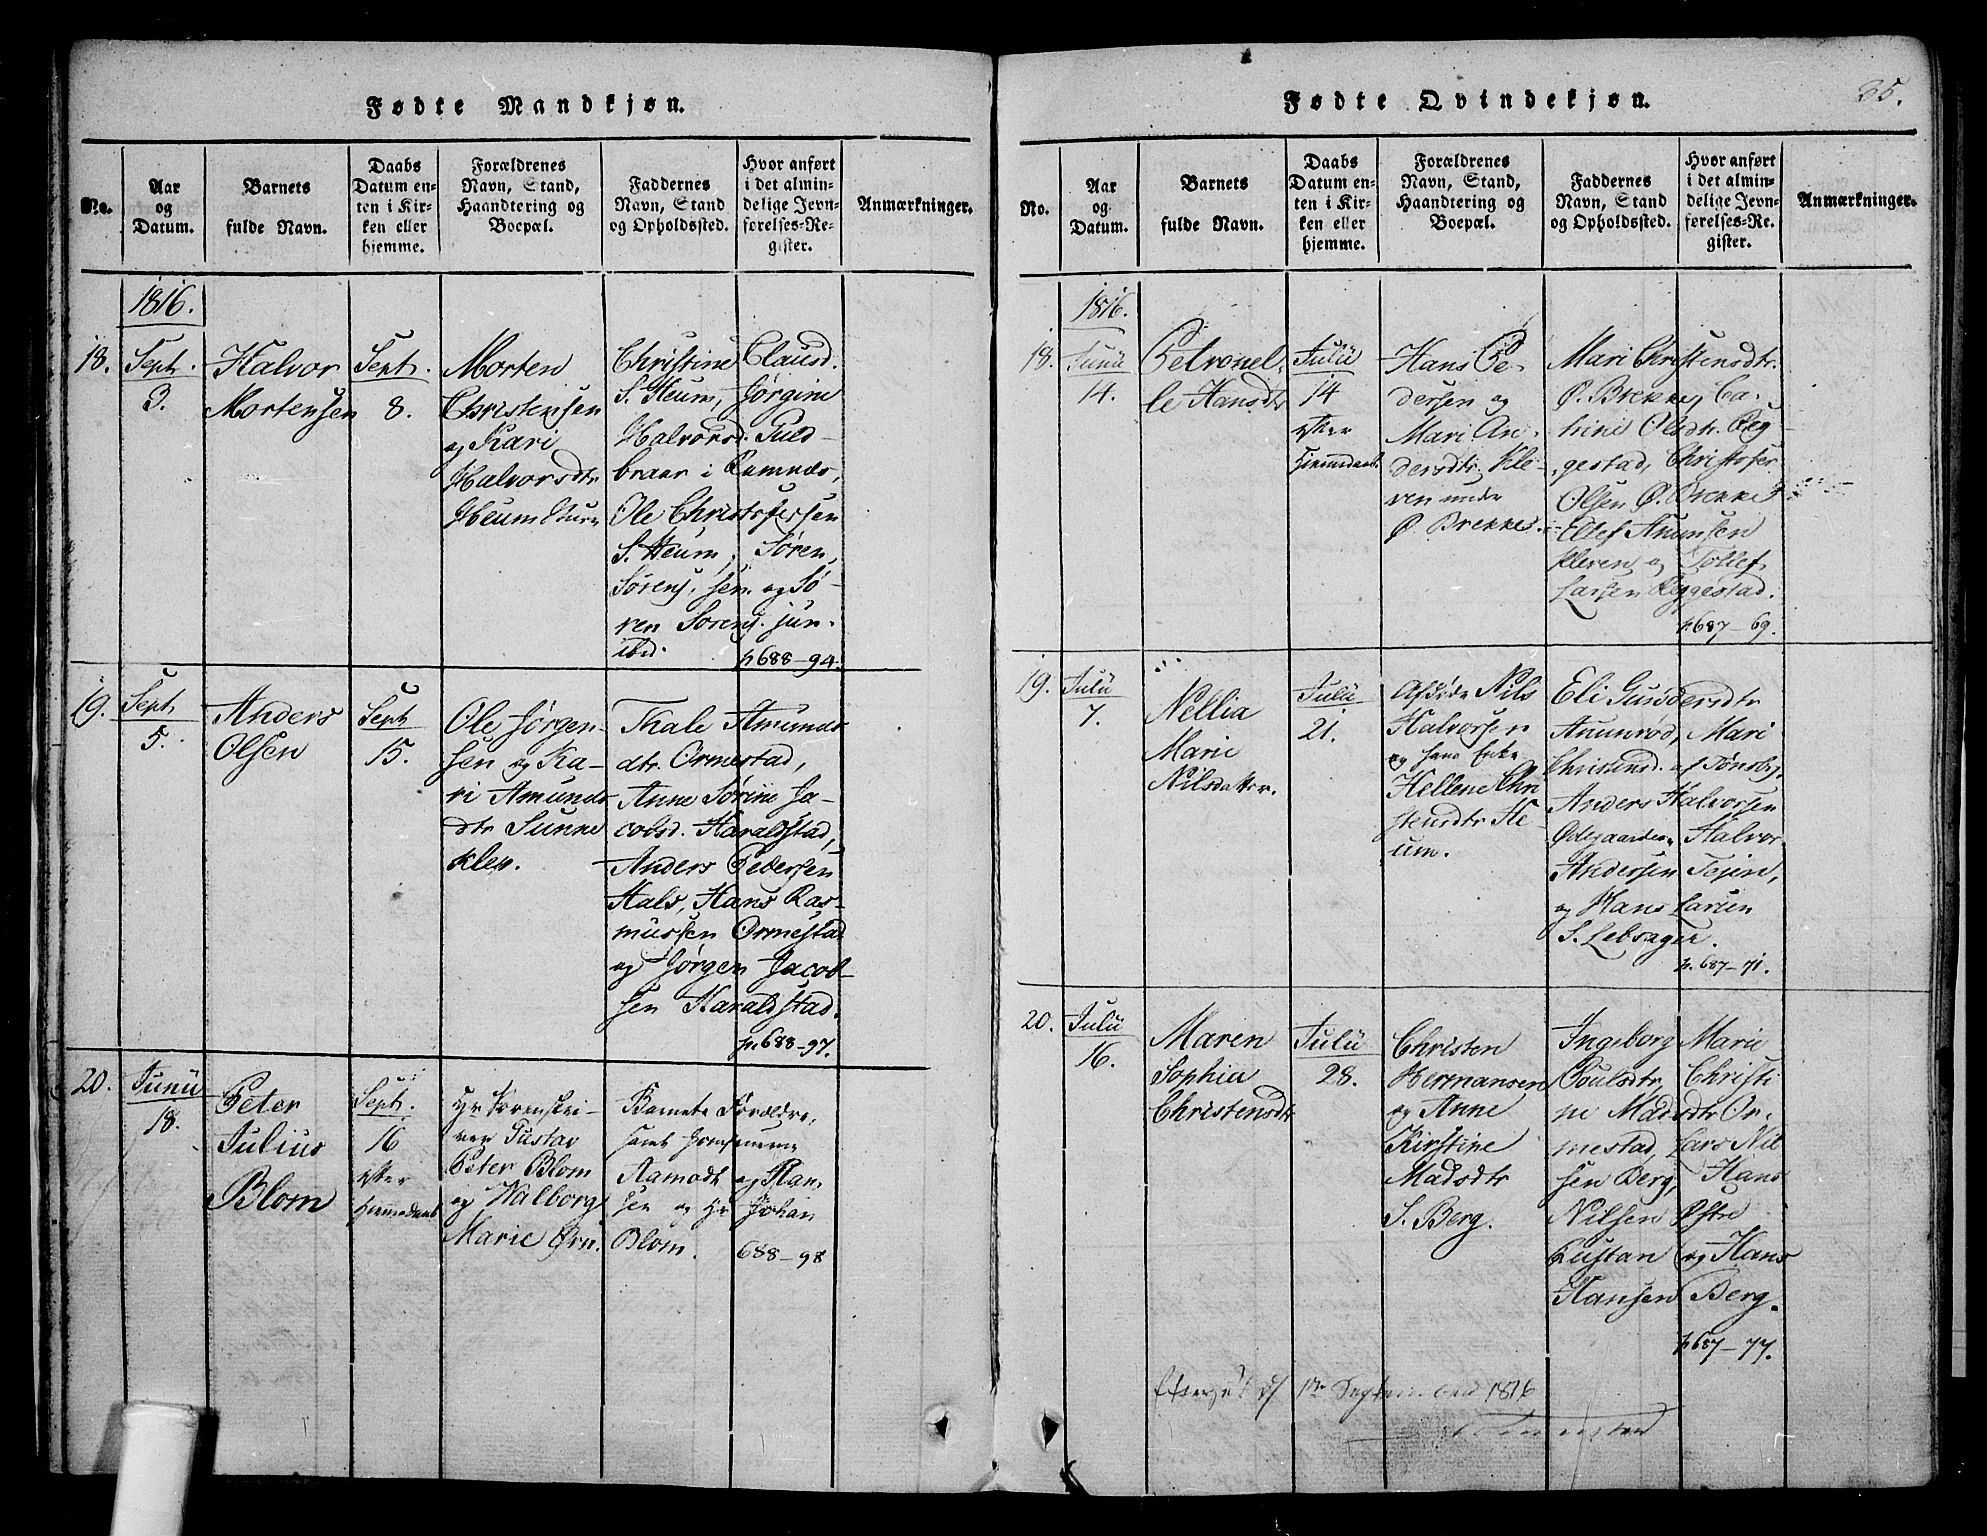 Fødte Mandkjøn.
No.
Aar
og
Datum.
Barnets
fulde Navn.
Daabs
Datum en-
ten i Kir-
ken eller
hjemme.
Forældrenes
Navn, Stand,
Haandtering og
Boepæl.
Faddernes
Navn, Stand
og Opholdssted.
Hvor anført
i det almin-
delige Jevn-
førelses-Re-
gister.
Anmærkninger.
1816.
18.
Sept.
3.
Halvor
Mortensen
Sept.
8.
Morten
Christensen
og Kari
Halvorsdtr
Heum
Christine Clausd.
S. Heum, Jørgine
Halvorsd. Fuld-
braar i Ramnæs,
Ole Christofersen
S. Heum, Søren
Sørens. sen. og Sø-
ren Sørens. jun.
ibid.
p 688-94.
19.
Sept
5.
Anders
Olsen
Sept
15.
Ole Jørgen-
sen og Ka-
ri Amunds
dtr Sunne
klev.
Thale Amunds
dtr. Ormestad,
Anne Sørine Ja-
cobsd. Haraldstad,
Anders Pedersen
Hals, Hans Ras-
mussen Ormestad
og Jørgen Jacob-
sen Haraldstad.
p. 688-97.
20.
Junii
18.
Peter
Julius
Blom
Sept.
16
efter
hiemmedaab
Hr Sorenskri-
ver Gustav
Peter Blom
og Valborg
Marie Ørn.
Barnets Forældre,
samt
Aamodt og Han-
sen og Hr Johan
Blom.
688-98
Fødte Qvindekjøn.
35.
No.
Aar
og
Datum.
Barnets
fulde Navn.
Daabs
Datum en-
ten i Kir-
ken eller
hjemme.
Forældrenes
Navn, Stand,
Haandtering og
Boepæl.
Faddernes
Navn, Stand
og Opholdssted.
Hvor anført
i det almin-
delige Jevn-
førelses-Re-
gister.
Anmærkninger.
1816.
18.
Junii
14.
Petronel-
le Hansdtr
Julii
14
efter
hiemmedaab.
Hans Pe-
dersen og
Mari An-
dersdtr. Kle-
ven under
Ø. Brekke.
Mari Christensdtr.
Ø. Brekke, Ca-
trine Olsdtr. Reg-
gestad, Christofer
Olsen Ø. Brekke,
Ellef Anunsen
Kleven og Tollef
Larsen Reggestad.
p. 687-69.
19.
Julii
7.
Nellia
Marie
Nilsdatter.
Julii
21.
Afdøde Nils
Halvorsen
og hans Enke
Hellene Chri
stensdtr He-
um.
Eli Gundersdtr
Anunrød, Mari
Christensd. af Tønsbg,
Anders Halvorsen
Ødegaarden, Halvor
Andersen Tejen,
og Hans Larsen
S. Lebsager.
p. 687-71.
20.
Julii
16.
Maren
Sophia
Christensdtr
Julii
28.
Christen
Hermansen
og Anne
Kirstine
Madsdtr
S. Berg.
Ingeborg Marie
Poulsdtr, Christi
ne Madsdtr Or-
mestad, Lars Nil-
sen Berg, Hans
Nilsen Østre
Lustan og Hans
Hansen Berg.
p 687-77.
Efterset d/ 1te September 1816